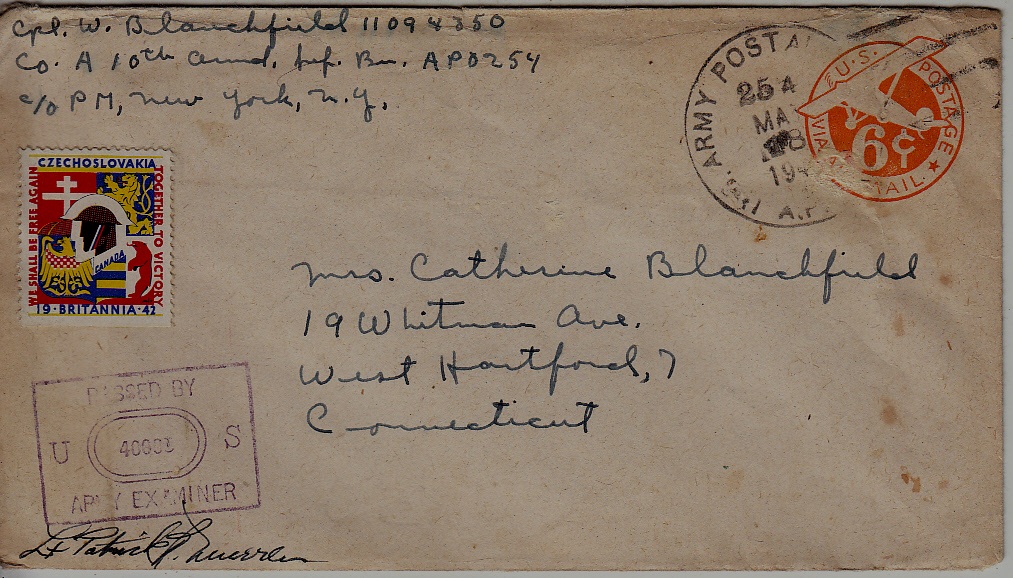 Cpl. W. Blanchfield 11094350
Co. A 10th Armd. Inf. Bn. APO254
c/o PM, New York, N.Y.
ARMY POSTAL
254
MA
8
194
A.P.
U.S. POSTAGE
VIA AIR MAIL
6¢
CZECHOSLOVAKIA
WE SHALL BE FREE AGAIN
TOGETHER TO VICTORY
CANADA
19·BRITANNIA·42
Mrs. Catherine Blanchfield
19 Whitman Ave.
West Hartford, 7
Connecticut
PASSED BY
U S
ARMY EXAMINER
Lt Patrick